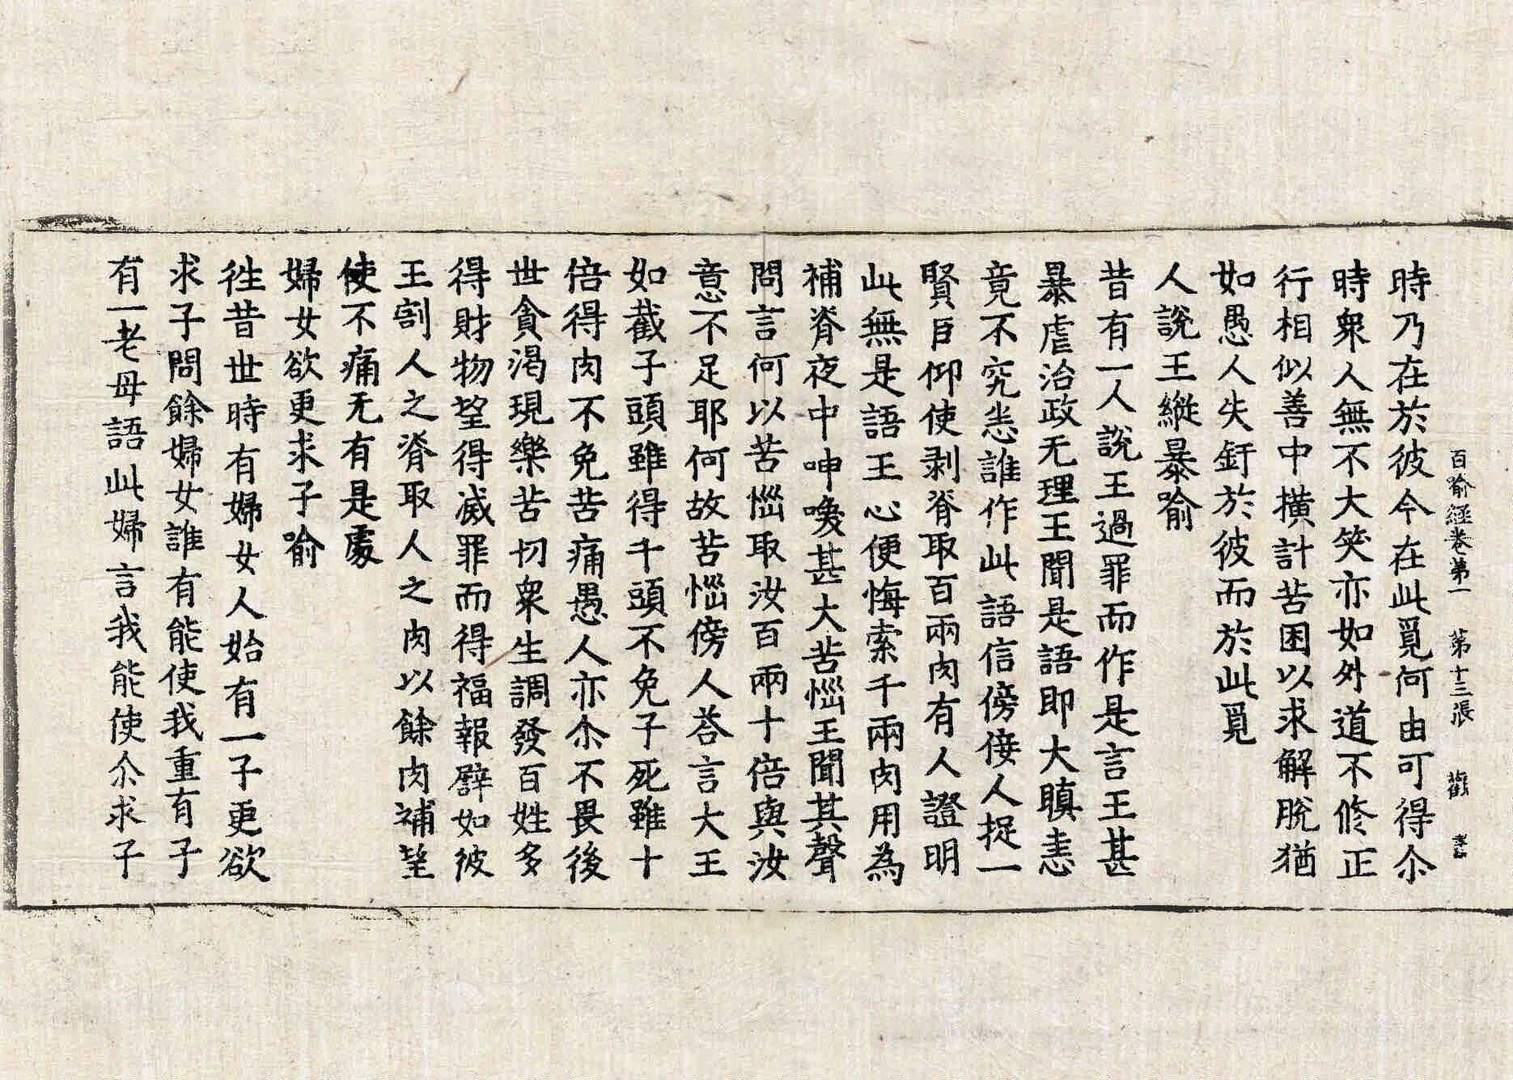 百喻經卷第一　第十三張　觀
時乃在於彼今在此覓何由可得尒
時衆人無不大笑亦如外道不修正
行相似善中横計苦困以求解脫猶
如愚人失釪於彼而於此覓
人說王縱暴喻
昔有一人說王過罪而作是言王甚
暴虐治政无理王聞是語即大瞋恚
竟不究悉誰作此語信傍侫人捉一
賢臣仰使剥脊取百兩肉有人證明
此無是語王心便悔索千兩肉用為
補脊夜中呻喚甚大苦惱王聞其聲
問言何以苦惱取汝百兩十倍與汝
意不足耶何故苦惱傍人荅言大王
如截子頭雖得千頭不免子死雖十
倍得肉不免苦痛愚人亦尒不畏後
世貪渴現樂苦切衆生調發百姓多
得財物望得滅罪而得福報譬如彼
王割人之脊取人之肉以餘肉補望
使不痛无有是處
婦女欲更求子喻
徃昔世時有婦女人始有一子更欲
求子問餘婦女誰有能使我重有子
有一老母語此婦言我能使尒求子